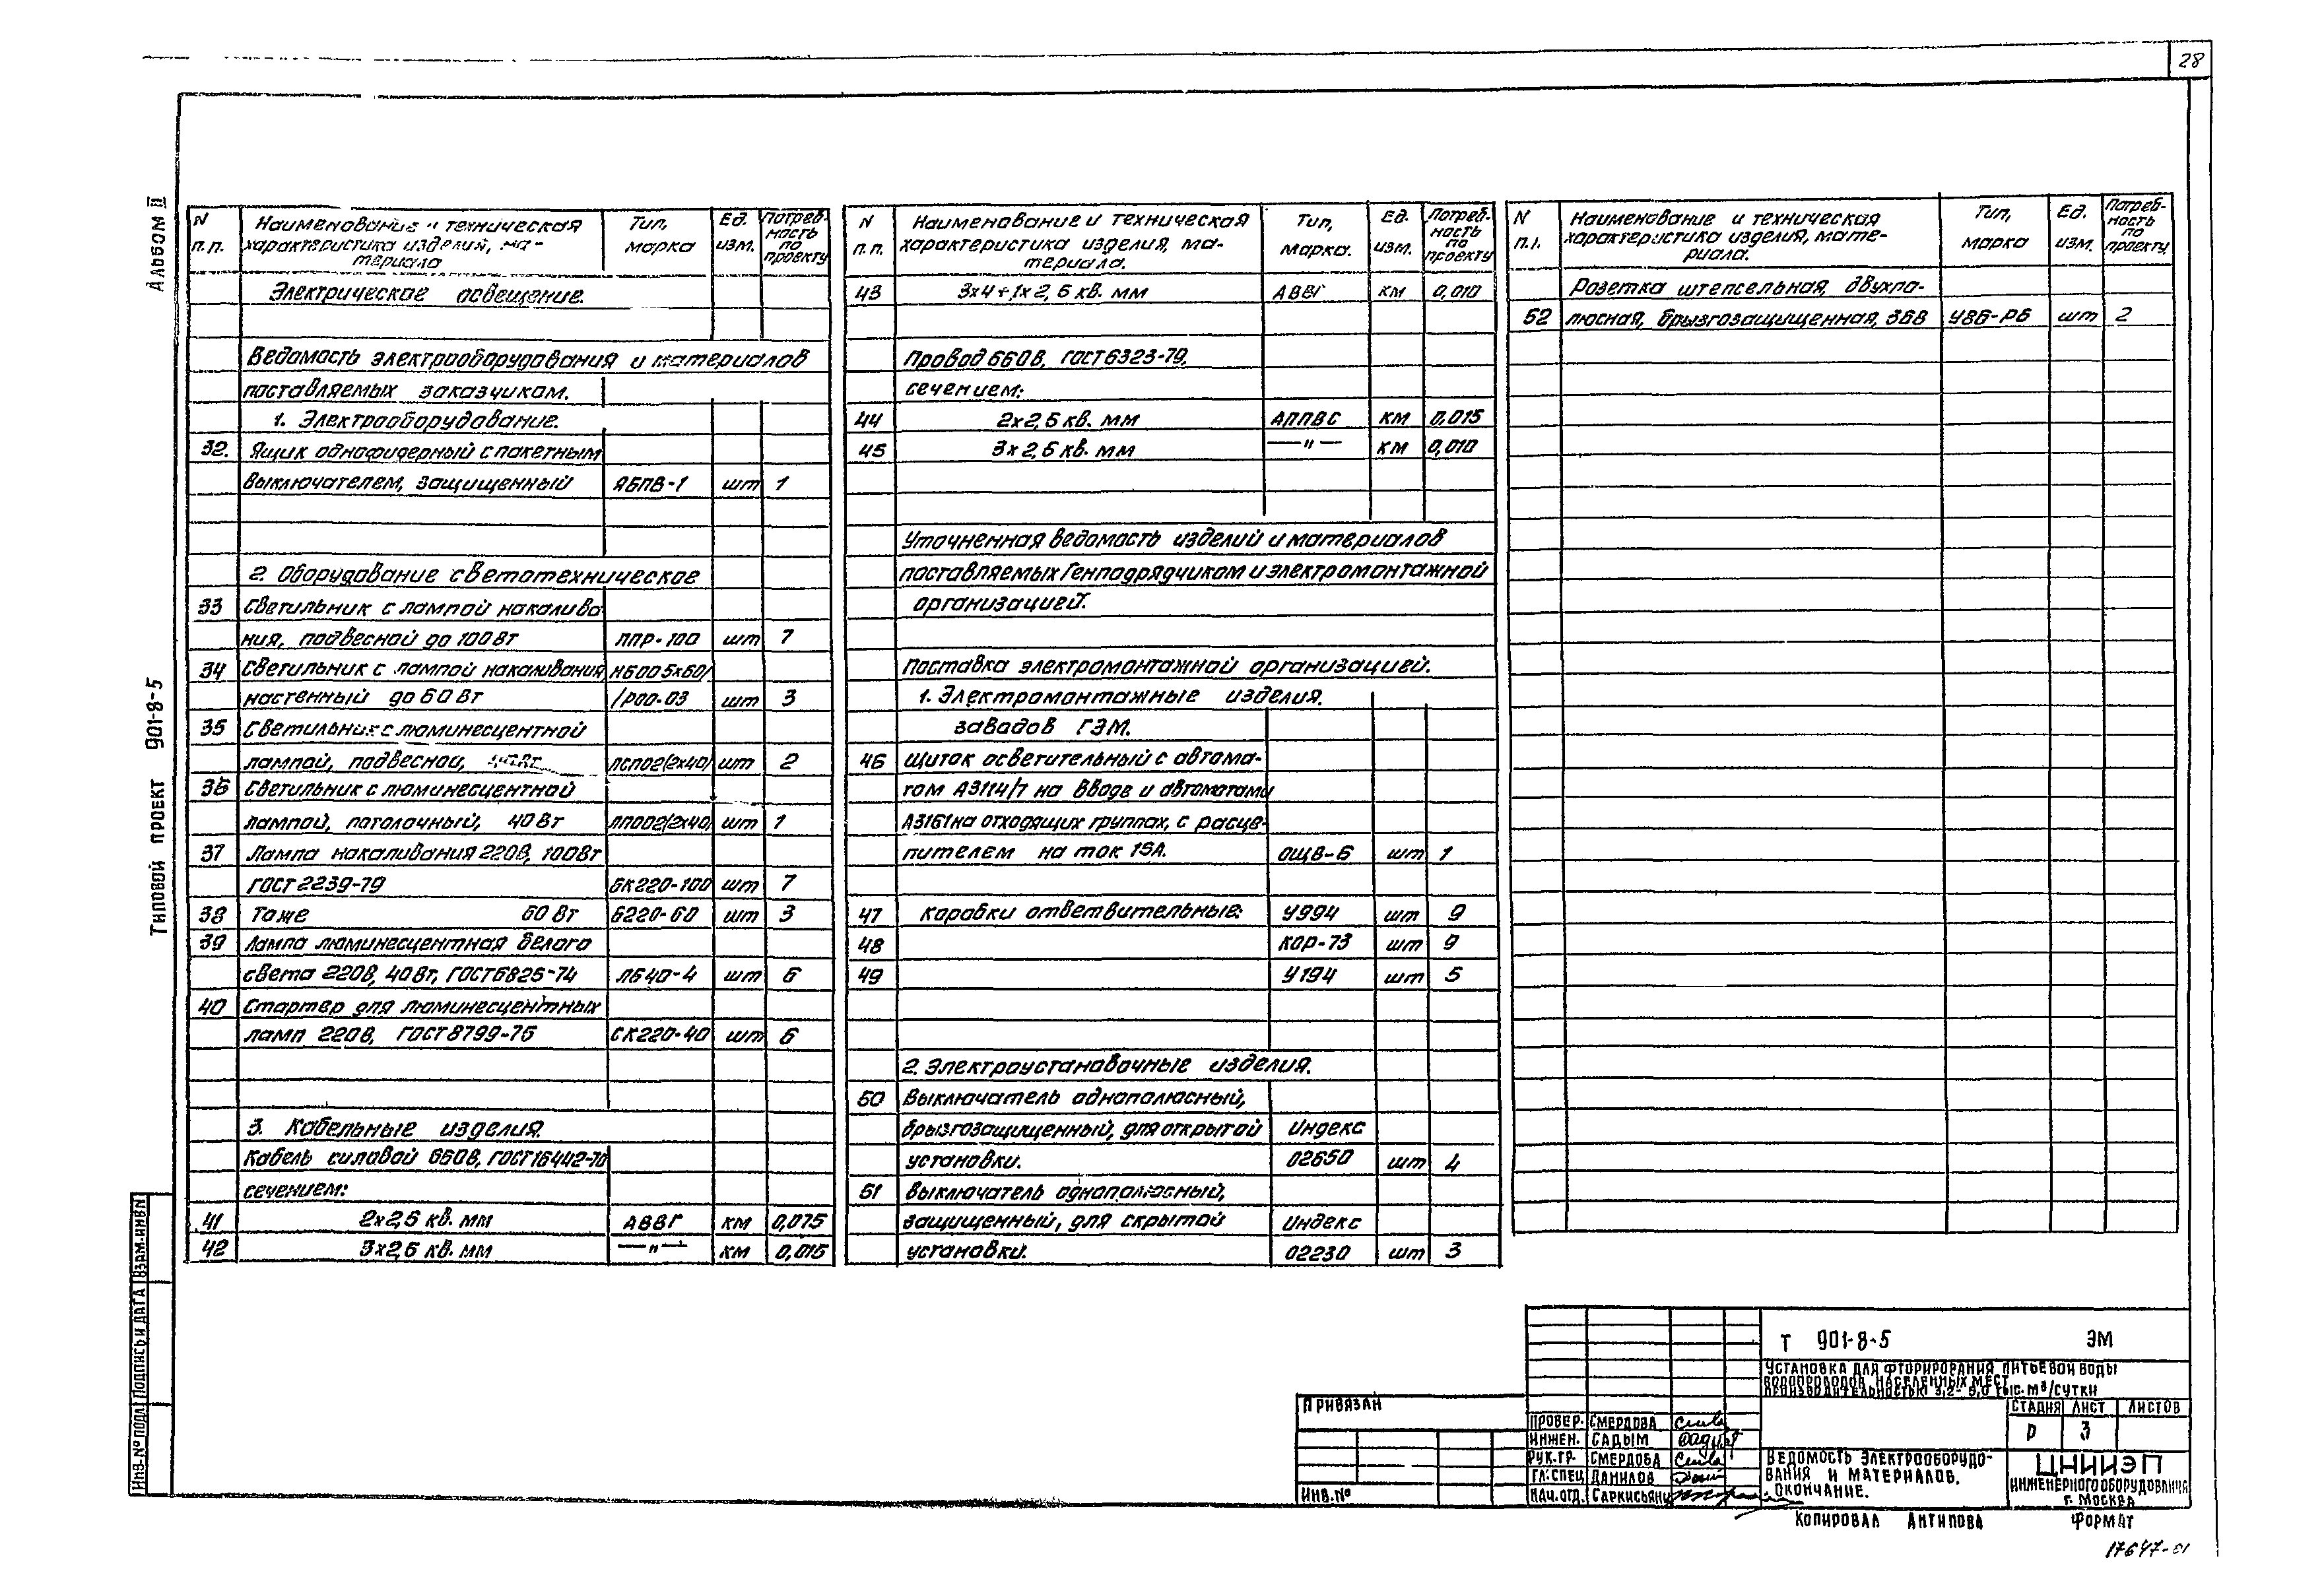 28
Альбом II
Типовой проект 901-8-5
N п.п. Наименование и техническая характеристика изделия, материала Тип, марка Ед. изм. Потребность по проекту
Электрическое освещение.
Ведомость электрооборудования и материалов
поставляемых заказчиком.
1. Электрооборудование.
32. Ящик однофидерный с пакетным
выключателем, защищенный ЯБПВ-1 шт 1
2. Оборудование светотехническое
33 Светильник с лампой накалива
ния, подвесной до 100 Вт ППР-100 шт 7
34 Светильник с лампой накаливания НБ005х60/
настенный до 60 Вт /Р00-03 шт 3
35 Светильник с люминесцентной
лампой, подвесной, ЛСП02(2х40) шт 2
36 Светильник с люминесцентной
лампой, потолочный, 40 Вт ЛПО02(2х40) шт 1
37 Лампа накаливания 220В, 100Вт
ГОСТ 2239-79 БК220-100 шт 7
38 Тоже 60 Вт Б220-60 шт 3
39 Лампа люминесцентная белого
света 220В, 40Вт, ГОСТ6825-74 ЛБ40-4 шт 6
40 Стартер для люминесцентных
ламп 220В, ГОСТ8799-75 СК220-40 шт 6
3. Кабельные изделия.
Кабель силовой 660В, ГОСТ16442-70
сечением:
41 2х2,5 кв. мм АВВГ км 0,075
42 3х2,5 кв. мм —"— км 0,015
N п.п. Наименование и техническая характеристика изделия, материала. Тип, марка. Ед. изм. Потребность по проекту
43 3х4+1х2,5 кв. мм АВВГ км 0,010
Провод 660В, ГОСТ6323-79,
сечением:
44 2х2,5 кв. мм АППВС км 0,015
45 3х2,5 кв. мм —"— км 0,010
Уточненная ведомость изделий и материалов
поставляемых Генподрядчиком и электромонтажной
организацией.
Поставка электромонтажной организацией.
1. Электромонтажные изделия.
заводов ГЭМ.
46 Щиток осветительный с автома-
том А3114/7 на вводе и автоматами
А3161 на отходящих группах, с расце-
пителем на ток 15А. ОЩВ-6 шт 1
47 Коробки ответвительные: У994 шт 9
48 КОР-73 шт 9
49 У194 шт 5
2. Электроустановочные изделия.
50 Выключатель однополюсный,
брызгозащищенный, для открытой Индекс
установки. 02650 шт 4
51 Выключатель однополюсный,
защищенный, для скрытой Индекс
установки. 02230 шт 3
N п.п. Наименование и техническая характеристика изделия, материала. Тип, марка Ед. изм. Потребность по проекту
Розетка штепсельная, двухпо-
52 люсная, брызгозащищенная, 36В У86-РБ шт 2
Инв.№ подл Подпись и дата Взам.инв№
Привязан
Инв.№
Т 901-8-5 ЭМ
Установка для фторирования питьевой воды
водопроводов населенных мест
производительностью 3,2-8,0 тыс. м³/сутки
Провер. Смердова
Инжен. Садым
Рук.гр. Смердова
Гл.спец Данилов
Нач.отд. Саркисьянц
Стадия Лист Листов
Р 3
Ведомость электрооборудо-
вания и материалов.
Окончание.
ЦНИИЭП
инженерного оборудования
г. Москва
Копировал Антипова Формат
17647-01